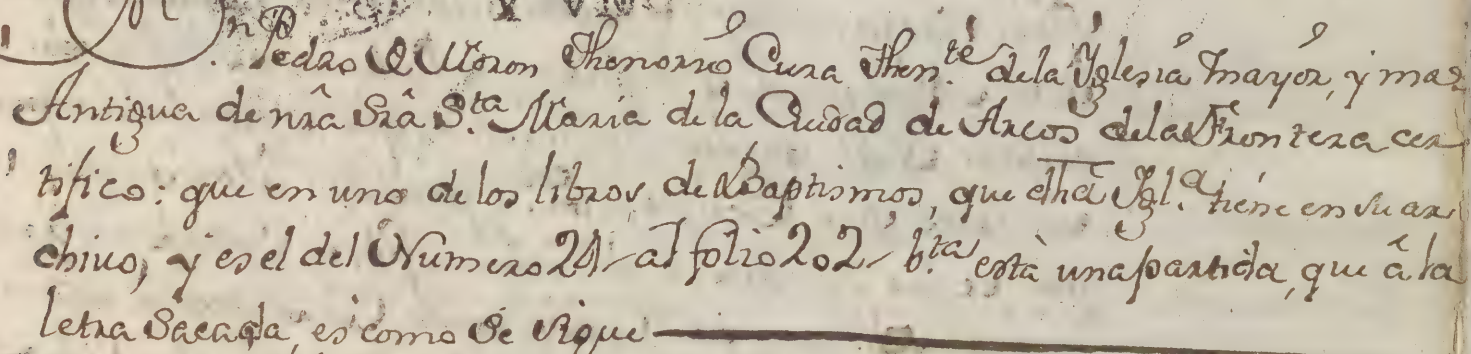 Dn Pedro de Moron Thenorio Cura Then.te dela Yglesia mayor, y mas
Antigua de nrâ Srâ S.ta Maria de la Ciudad de Arcos dela Frontera cer
tifico: que en uno de los libros de Baptismos, que dhâ Ygl.a tiene en su ar
chivo, y es el del Numero 24 al folio 202 b.ta està una partida, que â la
letra Sacada, es como Se sigue